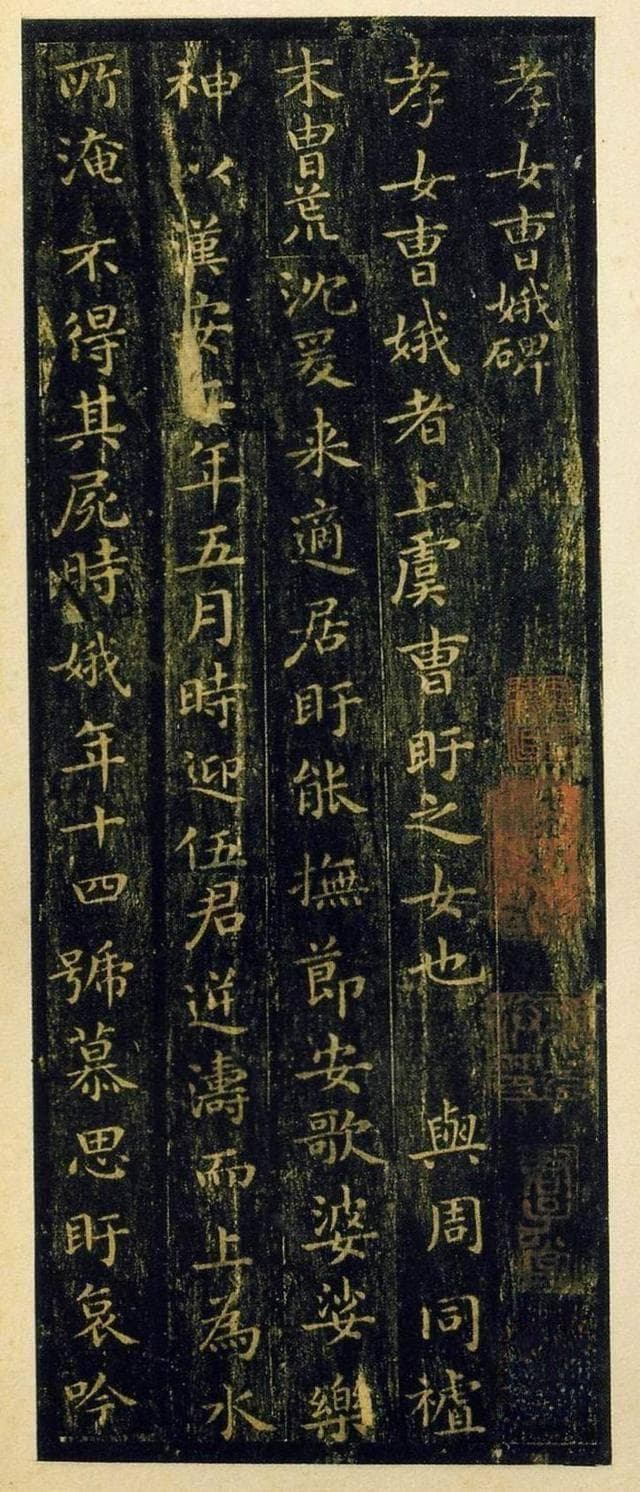 孝女曹娥碑
孝女曹娥者上虞曹盱之女也 與周同禇
末曹荒沈爰来適居盱能撫節安歌婆娑樂
神以漢安年五月時迎伍君逆濤而上為水
所淹不得其屍時娥年十四號慕思盱哀吟